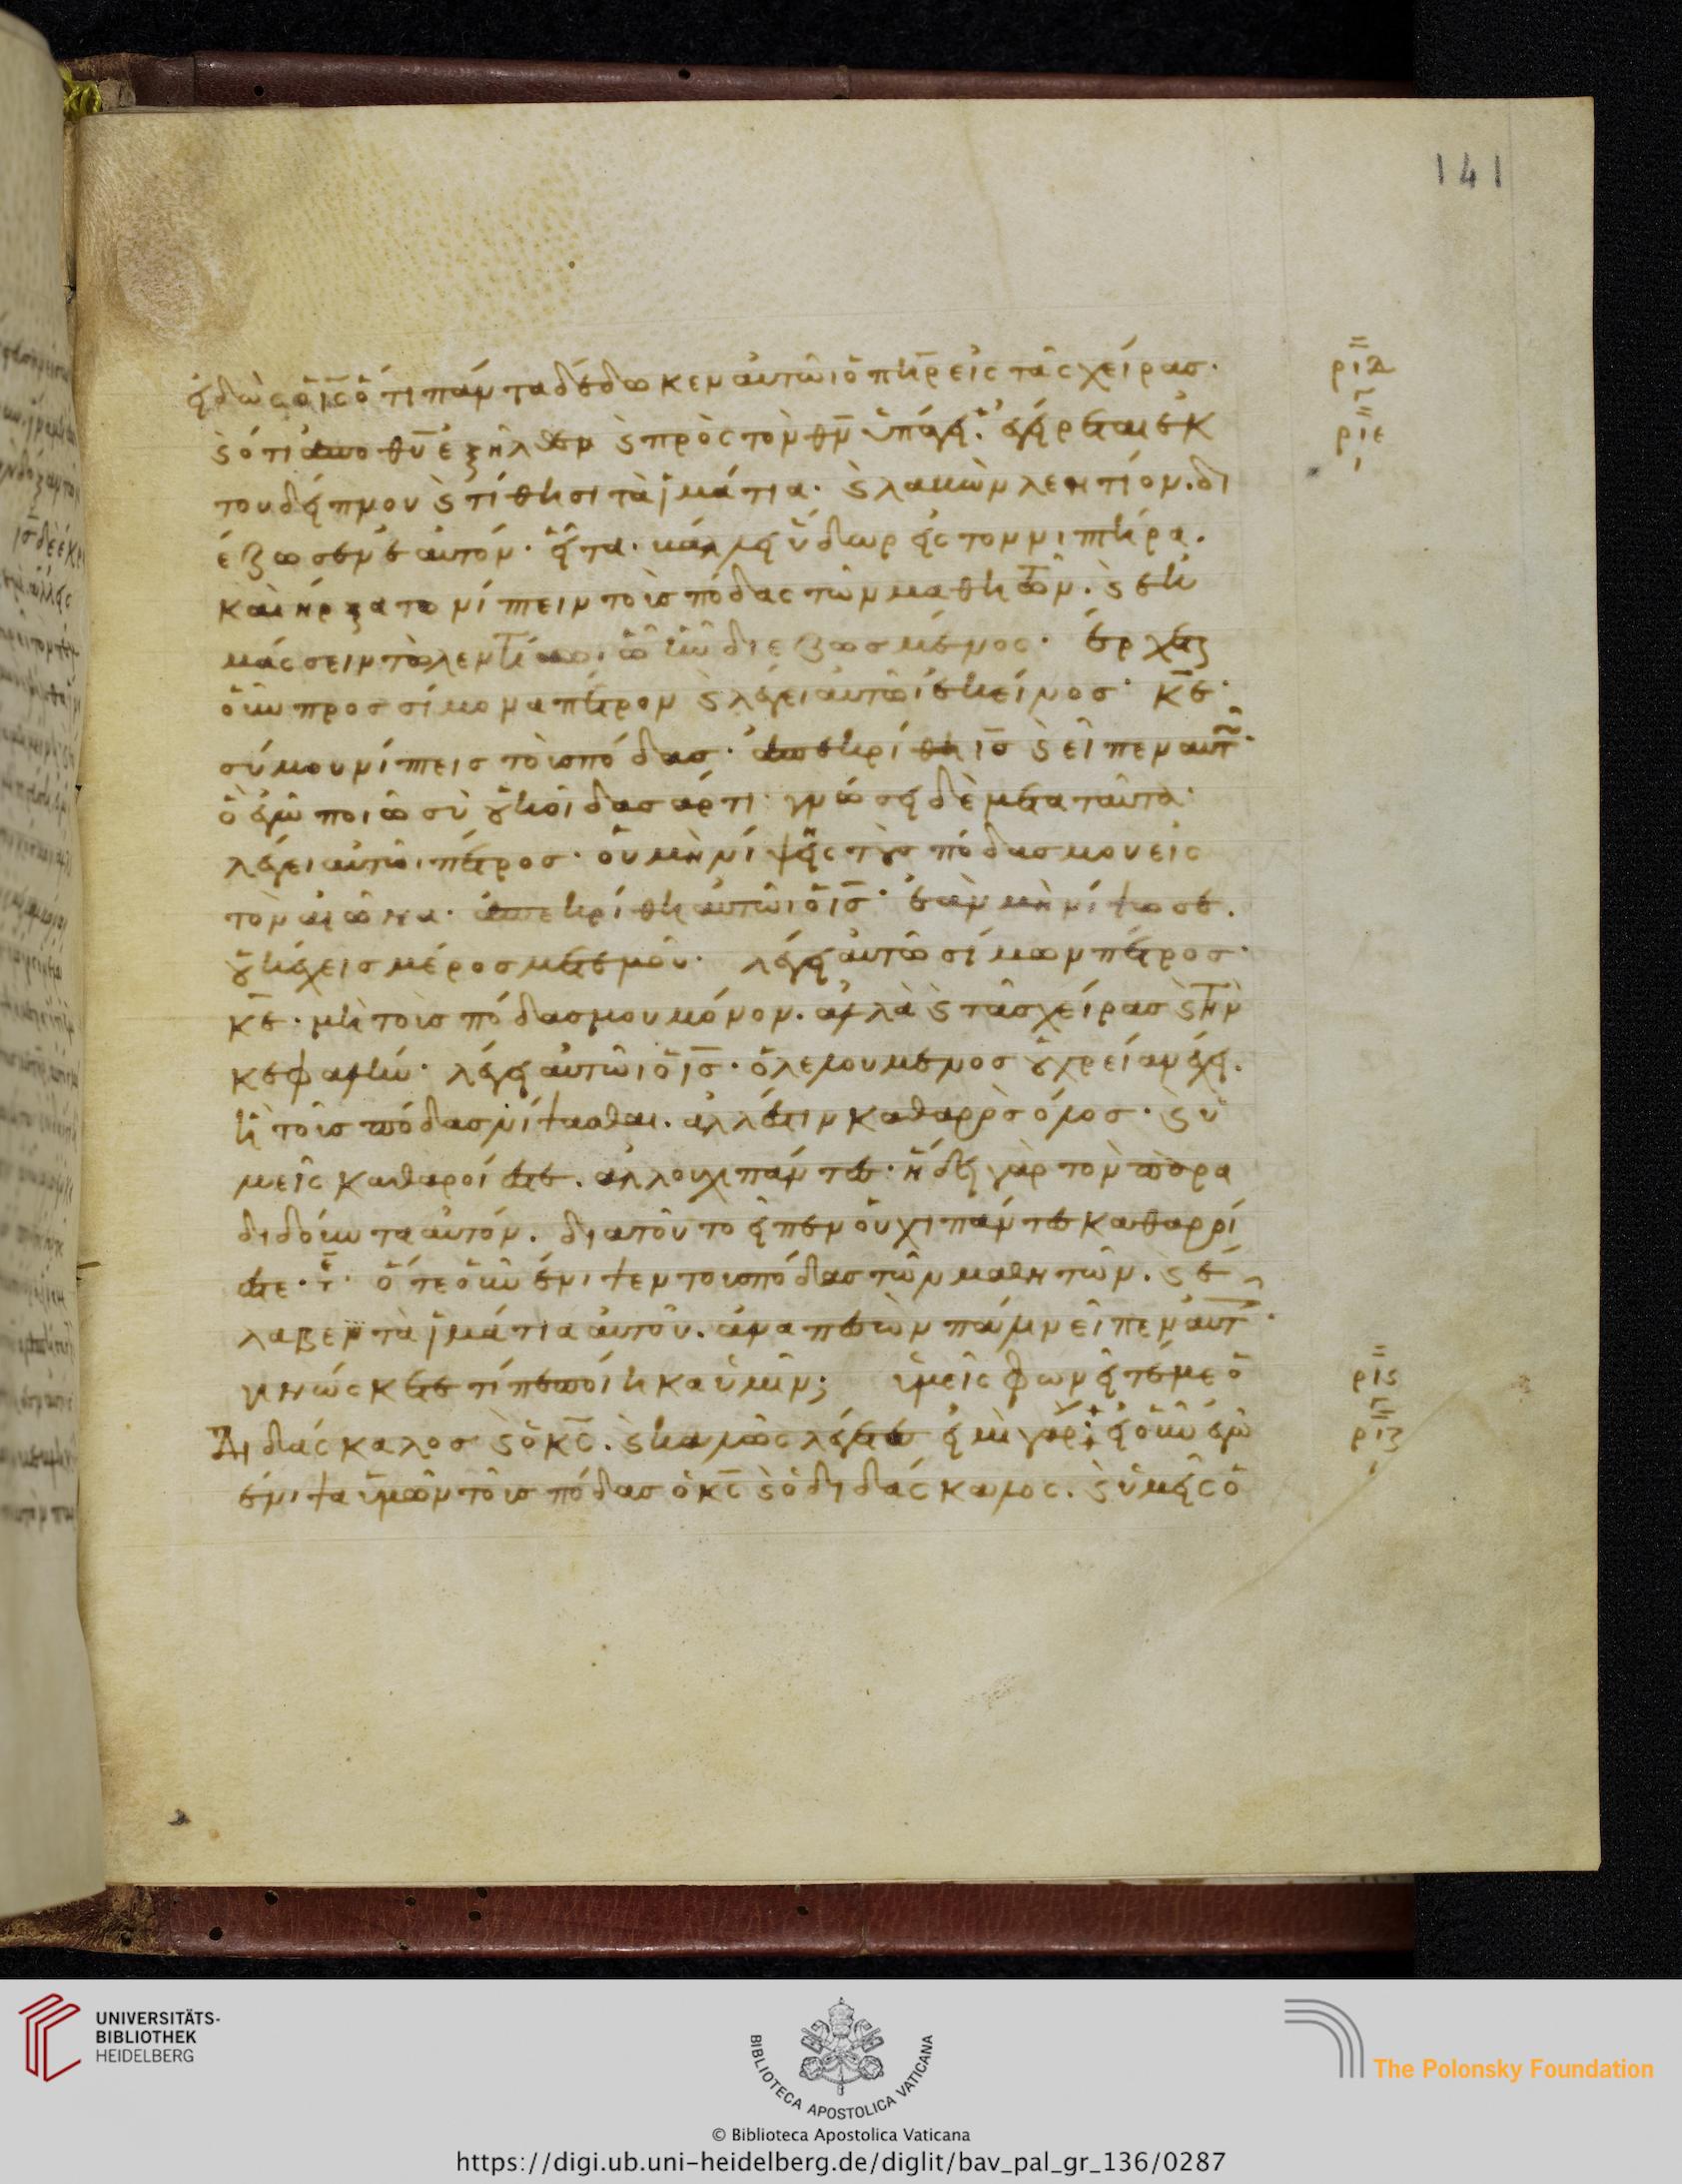 141
εἰδὼς ὁ ις ὅτι πάντα δέδωκεν αὐτῶι ὁ πηρ εἰς τὰς χεῖρας·
ριδ
ϛ ὅτι ἀπο θυ ἐξῆλθεν ϛ πρὸς τὸν θν ὑπάγει· ἐγείρεται ἐκ
ριε
του δείπνου ϛ τίθησι τὰ ἱμάτια· ϛ λαβὼν λεντιον· δι
έζωσεν ἑαυτόν· εἶτα βάλλει ὕδωρ εἰς τον νιπτῆρα·
καὶ ἤρξατο νίπτειν τοὺς πόδας τῶν μαθητῶν· ϛ ἐκ
μάσσειν τῶ λεντίωι· ὧ ἦν διεζωσμένος· ἔρχεται
οὖν προς σίμονα πέτρον ϛ λέγει αὐτῶι ἐκεῖνος· κε·
σύ μου νίπτεις τοὺς πόδας· ἀπεκρίθη ις ϛ εἶπεν αὐτῶ·
ὃ ἐγὼ ποιῶ σὺ οὐκ οἶδας ἄρτι· γνώσει δὲ μετα ταῦτα·
λέγει αὐτῶι πέτρος· οὐ μὴ νίψεις τοὺς πόδας μου εἰς
τὸν αἰῶνα· ἀπεκρίθη αὐτῶι ὁ ις· ἐὰν μὴ νίψω σε·
οὐκ ἔχεις μέρος μετ εμοῦ· λέγει αὐτῶ σίμων πέτρος·
κε· μὴ τοὺς πόδας μου μόνον· ἀλλὰ ϛ τὰς χεῖρας ϛ τὴν
κεφαλήν· λέγει αὐτῶι ὁ ις· ὁ λελουμενος οὐ χρείαν ἔχει·
ἢ τοὺς πόδας νίψασθαι· ἀλλ έστιν καθαρρὸς ὅλος· ϛ ὑ
μεῖς καθαροί ἐστε· ἀλλ ουχι πάντες· ἤδει γὰρ τον παρα
διδόντα αὐτόν· διατοῦτο εἶπεν οὐχι πάντες καθαρρί
ἐστε· ὅτε οὖν ἔνιψεν τους πόδας τῶν μαθητῶν· ϛ ἔ
λαβεν τὰ ἱμάτια αὐτοῦ· ἀναπεσὼν πάλιν εἶπεν αὐτ·
γινώσκετε τί πεποίηκα ὑμῖν; ὑμεῖς φωνεῖτέ με ὁ
ριϛ
Διδάσκαλος ϛ ὁ κς· ϛ καλῶς λέγετε εἰμὶ γάρ· εἰ οὖν ἐγὼ
ριζ
ἔνιψα ὑμῶν τοὺς πόδας ὁ κς ϛ ὁ διδάσκαλος· ϛ ὑμεῖς ὀ
UNIVERSITÄTS-
BIBLIOTHEK
HEIDELBERG
BIBLIOTECA APOSTOLICA VATICANA
The Polonsky Foundation
© Biblioteca Apostolica Vaticana
https://digi.ub.uni-heidelberg.de/diglit/bav_pal_gr_136/0287